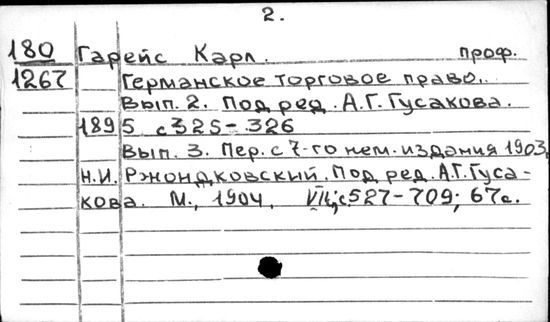 2.
180 Гарейс Карл. проф.
1267 Германское торговое право.
Вып. 2. Под ред. А.Г. Гусакова.
1895 с325-326
Вып. 3. Пер. с 7-го нем. издания 1903
Н.И. Ржондковский. Под ред. А.Г. Гуса-
кова. М., 1904, с.527-709; 67с.